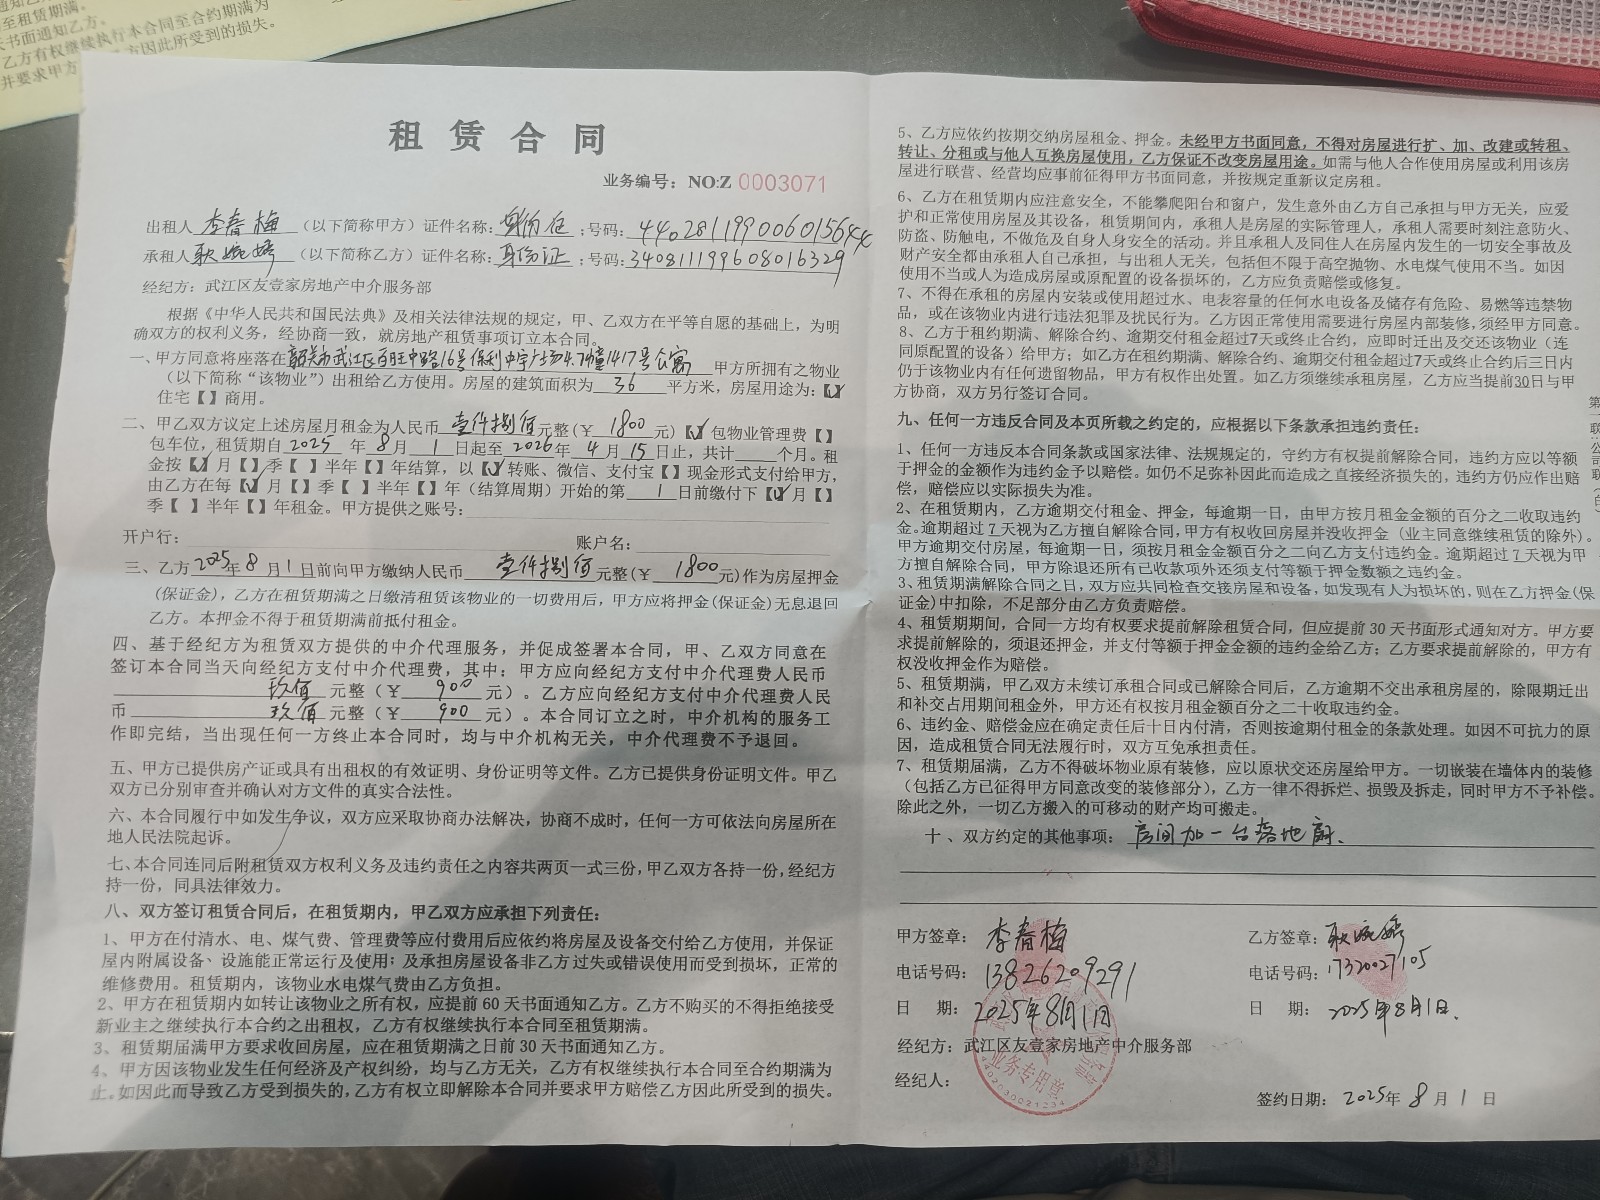 至租赁期满。
天书面通知乙方。
乙方有权继续执行本合同至合约期满为
并要求甲方
方因此所受到的损失。
租赁合同
业务编号：NO:Z 0003071
出租人 李春梅 （以下简称甲方）证件名称：身份证；号码：440281199006015644
承租人 耿婉婷 （以下简称乙方）证件名称：身份证；号码：340811199608016329
经纪方：武江区友壹家房地产中介服务部
根据《中华人民共和国民法典》及相关法律法规的规定，甲、乙双方在平等自愿的基础上，为明
确双方的权利义务，经协商一致，就房地产租赁事项订立本合同。
一、甲方同意将座落在韶关市武江区百旺中路16号保利中宇广场4.7幢1417号公寓 甲方所拥有之物业
（以下简称“该物业”）出租给乙方使用。房屋的建筑面积为 36 平方米，房屋用途为：【√】
住宅【 】商用。
二、甲乙双方议定上述房屋月租金为人民币 壹仟捌佰 元整（￥ 1800 元）【√】包物业管理费【 】
包车位，租赁期自 2025 年 8 月 1 日起至 2026 年 4 月 15 日止，共计 个月。租
金按【√】月【 】季【 】半年【 】年结算，以【√】转账、微信、支付宝【 】现金形式支付给甲方，
由乙方在每【√】月【 】季【 】半年【 】年（结算周期）开始的第 1 日前缴付下【√】月【 】
季【 】半年【 】年租金。甲方提供之账号：
开户行： 账户名：
三、乙方 2025 年 8 月 1 日前向甲方缴纳人民币 壹仟捌佰 元整（￥ 1800 元）作为房屋押金
(保证金)，乙方在租赁期满之日缴清租赁该物业的一切费用后，甲方应将押金(保证金)无息退回
乙方。本押金不得于租赁期满前抵付租金。
四、基于经纪方为租赁双方提供的中介代理服务，并促成签署本合同，甲、乙双方同意在
签订本合同当天向经纪方支付中介代理费，其中：甲方应向经纪方支付中介代理费人民币
玖佰 元整（￥ 900 元）。乙方应向经纪方支付中介代理费人民
币 玖佰 元整（￥ 900 元）。本合同订立之时，中介机构的服务工
作即完结，当出现任何一方终止本合同时，均与中介机构无关，中介代理费不予退回。
五、甲方已提供房产证或具有出租权的有效证明、身份证明等文件。乙方已提供身份证明文件。甲乙
双方已分别审查并确认对方文件的真实合法性。
六、本合同履行中如发生争议，双方应采取协商办法解决，协商不成时，任何一方可依法向房屋所在
地人民法院起诉。
七、本合同连同后附租赁双方权利义务及违约责任之内容共两页一式三份，甲乙双方各持一份，经纪方
持一份，同具法律效力。
八、双方签订租赁合同后，在租赁期内，甲乙双方应承担下列责任：
1、甲方在付清水、电、煤气费、管理费等应付费用后应依约将房屋及设备交付给乙方使用，并保证
屋内附属设备、设施能正常运行及使用；及承担房屋设备非乙方过失或错误使用而受到损坏，正常的
维修费用。租赁期内，该物业水电煤气费由乙方负担。
2、甲方在租赁期内如转让该物业之所有权，应提前 60 天书面通知乙方。乙方不购买的不得拒绝接受
新业主之继续执行本合约之出租权，乙方有权继续执行本合同至租赁期满。
3、租赁期届满甲方要求收回房屋，应在租赁期满之日前 30 天书面通知乙方。
4、甲方因该物业发生任何经济及产权纠纷，均与乙方无关，乙方有权继续执行本合同至合约期满为
止。如因此而导致乙方受到损失的，乙方有权立即解除本合同并要求甲方赔偿乙方因此所受到的损失。
5、乙方应依约按期交纳房屋租金、押金。未经甲方书面同意，不得对房屋进行扩、加、改建或转租、
转让、分租或与他人互换房屋使用，乙方保证不改变房屋用途。如需与他人合作使用房屋或利用该房
屋进行联营、经营均应事前征得甲方书面同意，并按规定重新议定房租。
6、乙方在租赁期内应注意安全，不能攀爬阳台和窗户，发生意外由乙方自己承担与甲方无关，应爱
护和正常使用房屋及其设备，租赁期间内，承租人是房屋的实际管理人，承租人需要时刻注意防火、
防盗、防触电，不做危及自身人身安全的活动。并且承租人及同住人在房屋内发生的一切安全事故及
财产安全都由承租人自己承担，与出租人无关，包括但不限于高空抛物、水电煤气使用不当。如因
使用不当或人为造成房屋或原配置的设备损坏的，乙方应负责赔偿或修复。
7、不得在承租的房屋内安装或使用超过水、电表容量的任何水电设备及储存有危险、易燃等违禁物
品，或在该物业内进行违法犯罪及扰民行为。乙方因正常使用需要进行房屋内部装修，须经甲方同意。
8、乙方于租约期满、解除合约、逾期交付租金超过7天或终止合约，应即时迁出及交还该物业（连
同原配置的设备）给甲方；如乙方在租约期满、解除合约、逾期交付租金超过7天或终止合约后三日内
仍于该物业内有任何遗留物品，甲方有权作出处置。如乙方须继续承租房屋，乙方应当提前30日与甲
方协商，双方另行签订合同。
九、任何一方违反合同及本页所载之约定的，应根据以下条款承担违约责任：
1、任何一方违反本合同条款或国家法律、法规规定的，守约方有权提前解除合同，违约方应以等额
于押金的金额作为违约金予以赔偿。如仍不足弥补因此而造成之直接经济损失的，违约方仍应作出赔
偿，赔偿应以实际损失为准。
2、在租赁期内，乙方逾期交付租金、押金，每逾期一日，由甲方按月租金金额的百分之二收取违约
金。逾期超过 7 天视为乙方擅自解除合同，甲方有权收回房屋并没收押金（业主同意继续租赁的除外）。
甲方逾期交付房屋，每逾期一日，须按月租金金额百分之二向乙方支付违约金。逾期超过 7 天视为甲
方擅自解除合同，甲方除退还所有已收款项外还须支付等额于押金数额之违约金。
3、租赁期满解除合同之日，双方应共同检查交接房屋和设备，如发现有人为损坏的，则在乙方押金(保
证金)中扣除，不足部分由乙方负责赔偿。
4、租赁期期间，合同一方均有权要求提前解除租赁合同，但应提前 30 天书面形式通知对方。甲方要
求提前解除的，须退还押金，并支付等额于押金金额的违约金给乙方；乙方要求提前解除的，甲方有
权没收押金作为赔偿。
5、租赁期满，甲乙双方未续订承租合同或已解除合同后，乙方逾期不交出承租房屋的，除限期迁出
和补交占用期间租金外，甲方还有权按月租金额百分之二十收取违约金。
6、违约金、赔偿金应在确定责任后十日内付清，否则按逾期付租金的条款处理。如因不可抗力的原
因，造成租赁合同无法履行时，双方互免承担责任。
7、租赁期届满，乙方不得破坏物业原有装修，应以原状交还房屋给甲方。一切嵌装在墙体内的装修
（包括乙方已征得甲方同意改变的装修部分），乙方一律不得拆烂、损毁及拆走，同时甲方不予补偿。
除此之外，一切乙方搬入的可移动的财产均可搬走。
十、双方约定的其他事项： 房间加一台落地扇、
甲方签章： 李春梅
电话号码： 13826209291
日 期： 2025年8月1日
乙方签章： 耿婉婷
电话号码： 17320027105
日 期： 2025年8月1日.
经纪方：武江区友壹家房地产中介服务部
经纪人：
业务专用章
签约日期： 2025 年 8 月 1 日
第
联
公
司
联